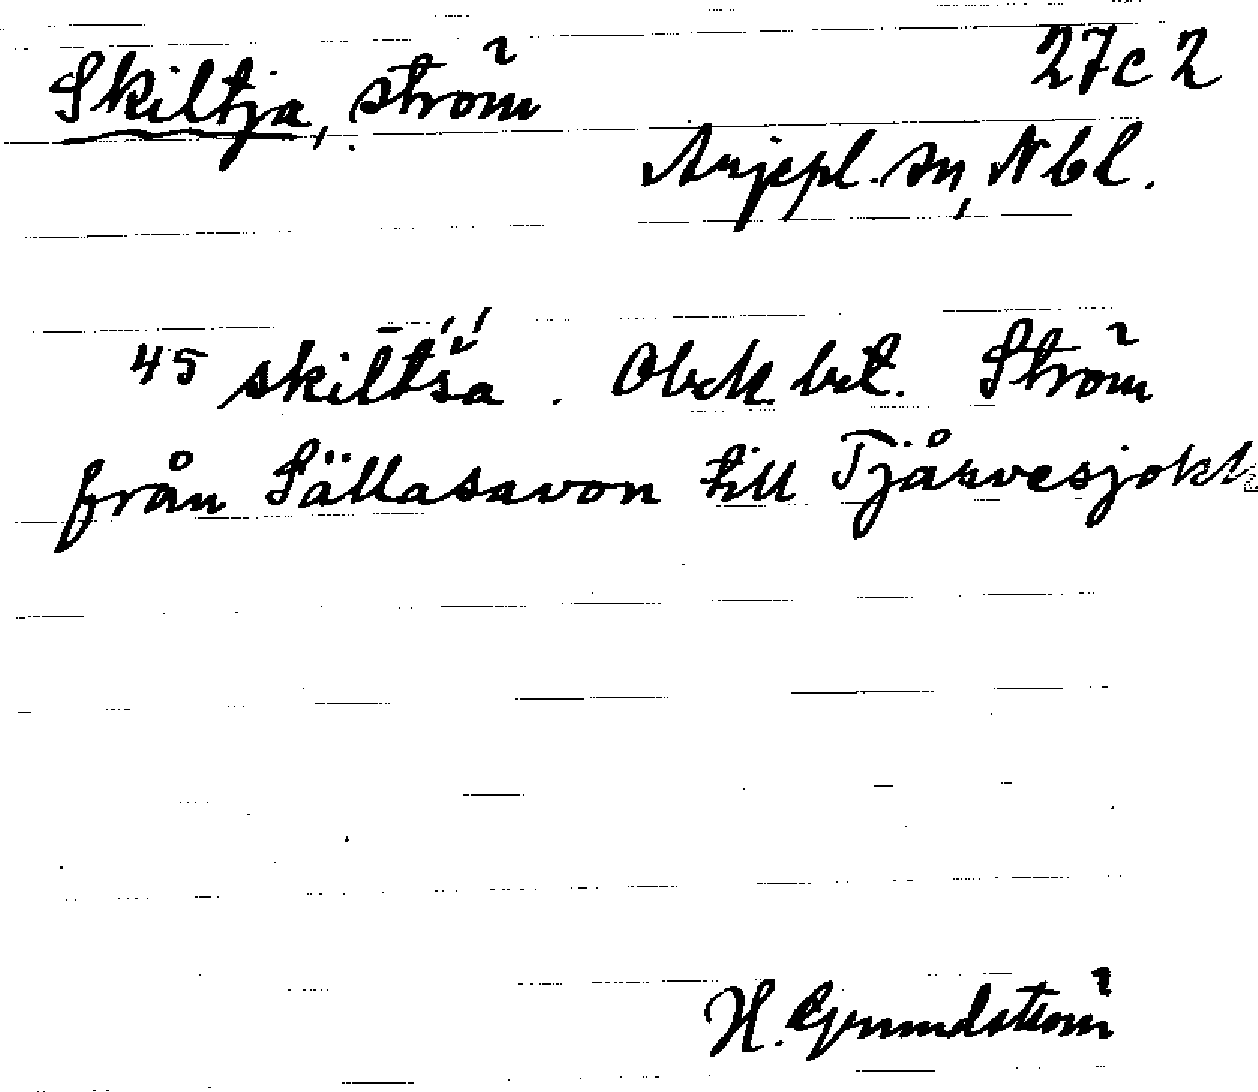 Skiltja, ström
27c2
Arjepl. sn, Nbl.
45 skiltša. Obek bet. Ström
från Sällasavon till Tjåsvesjokk
H. Grundström